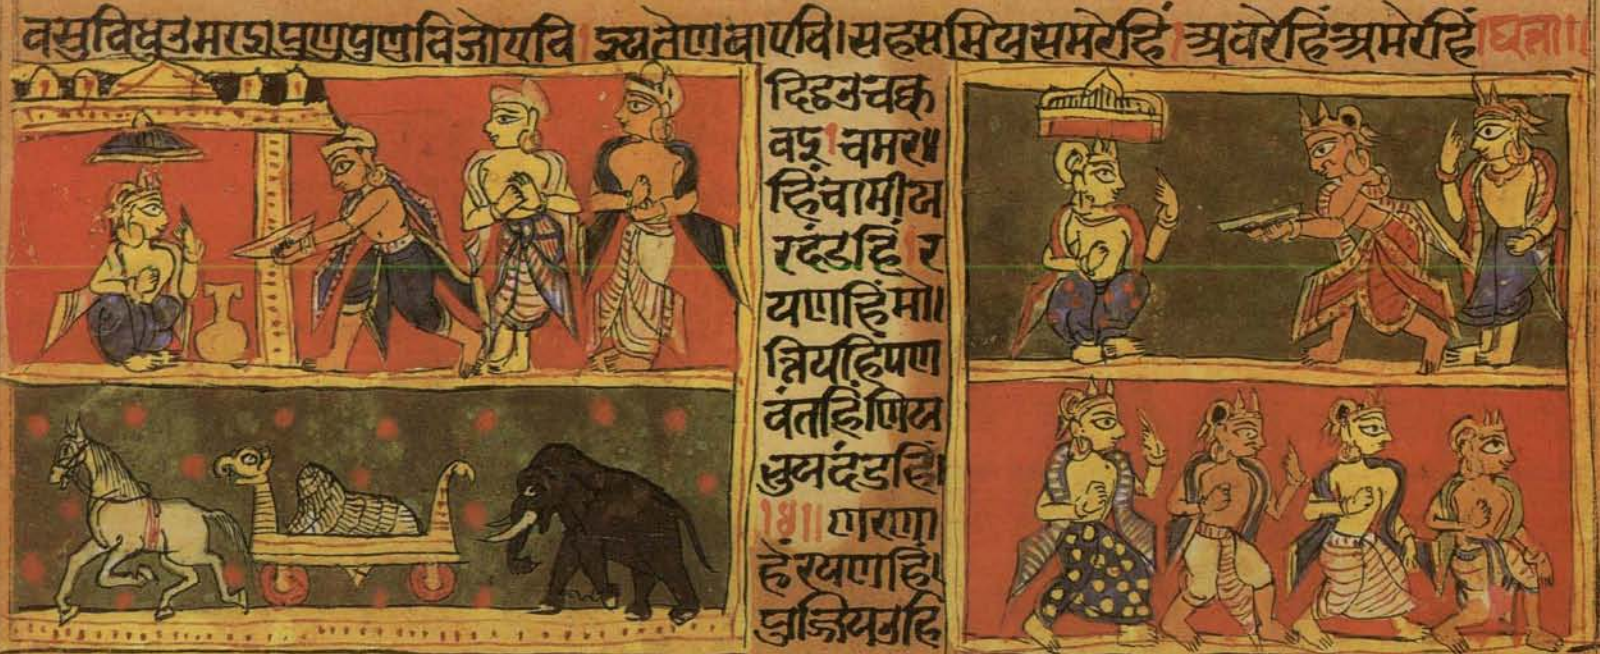 वसुविधुउमराउ पुणुपुणुविजोएवि । ज्झतेणवाएवि । सहसमियसमरेहिं । अवरेहिंअमरेहिं । घत्ता ॥
दिट्ठउचक्क
वइ । चमर ॥
हिंचामीय
रदंडहिं । र
यणहिंमो ।
त्तियहिंपण
वंतहिंणिय
दंडहिं ।
॥ णरणा
हेंरयणहिं ।
पुज्जियउहि